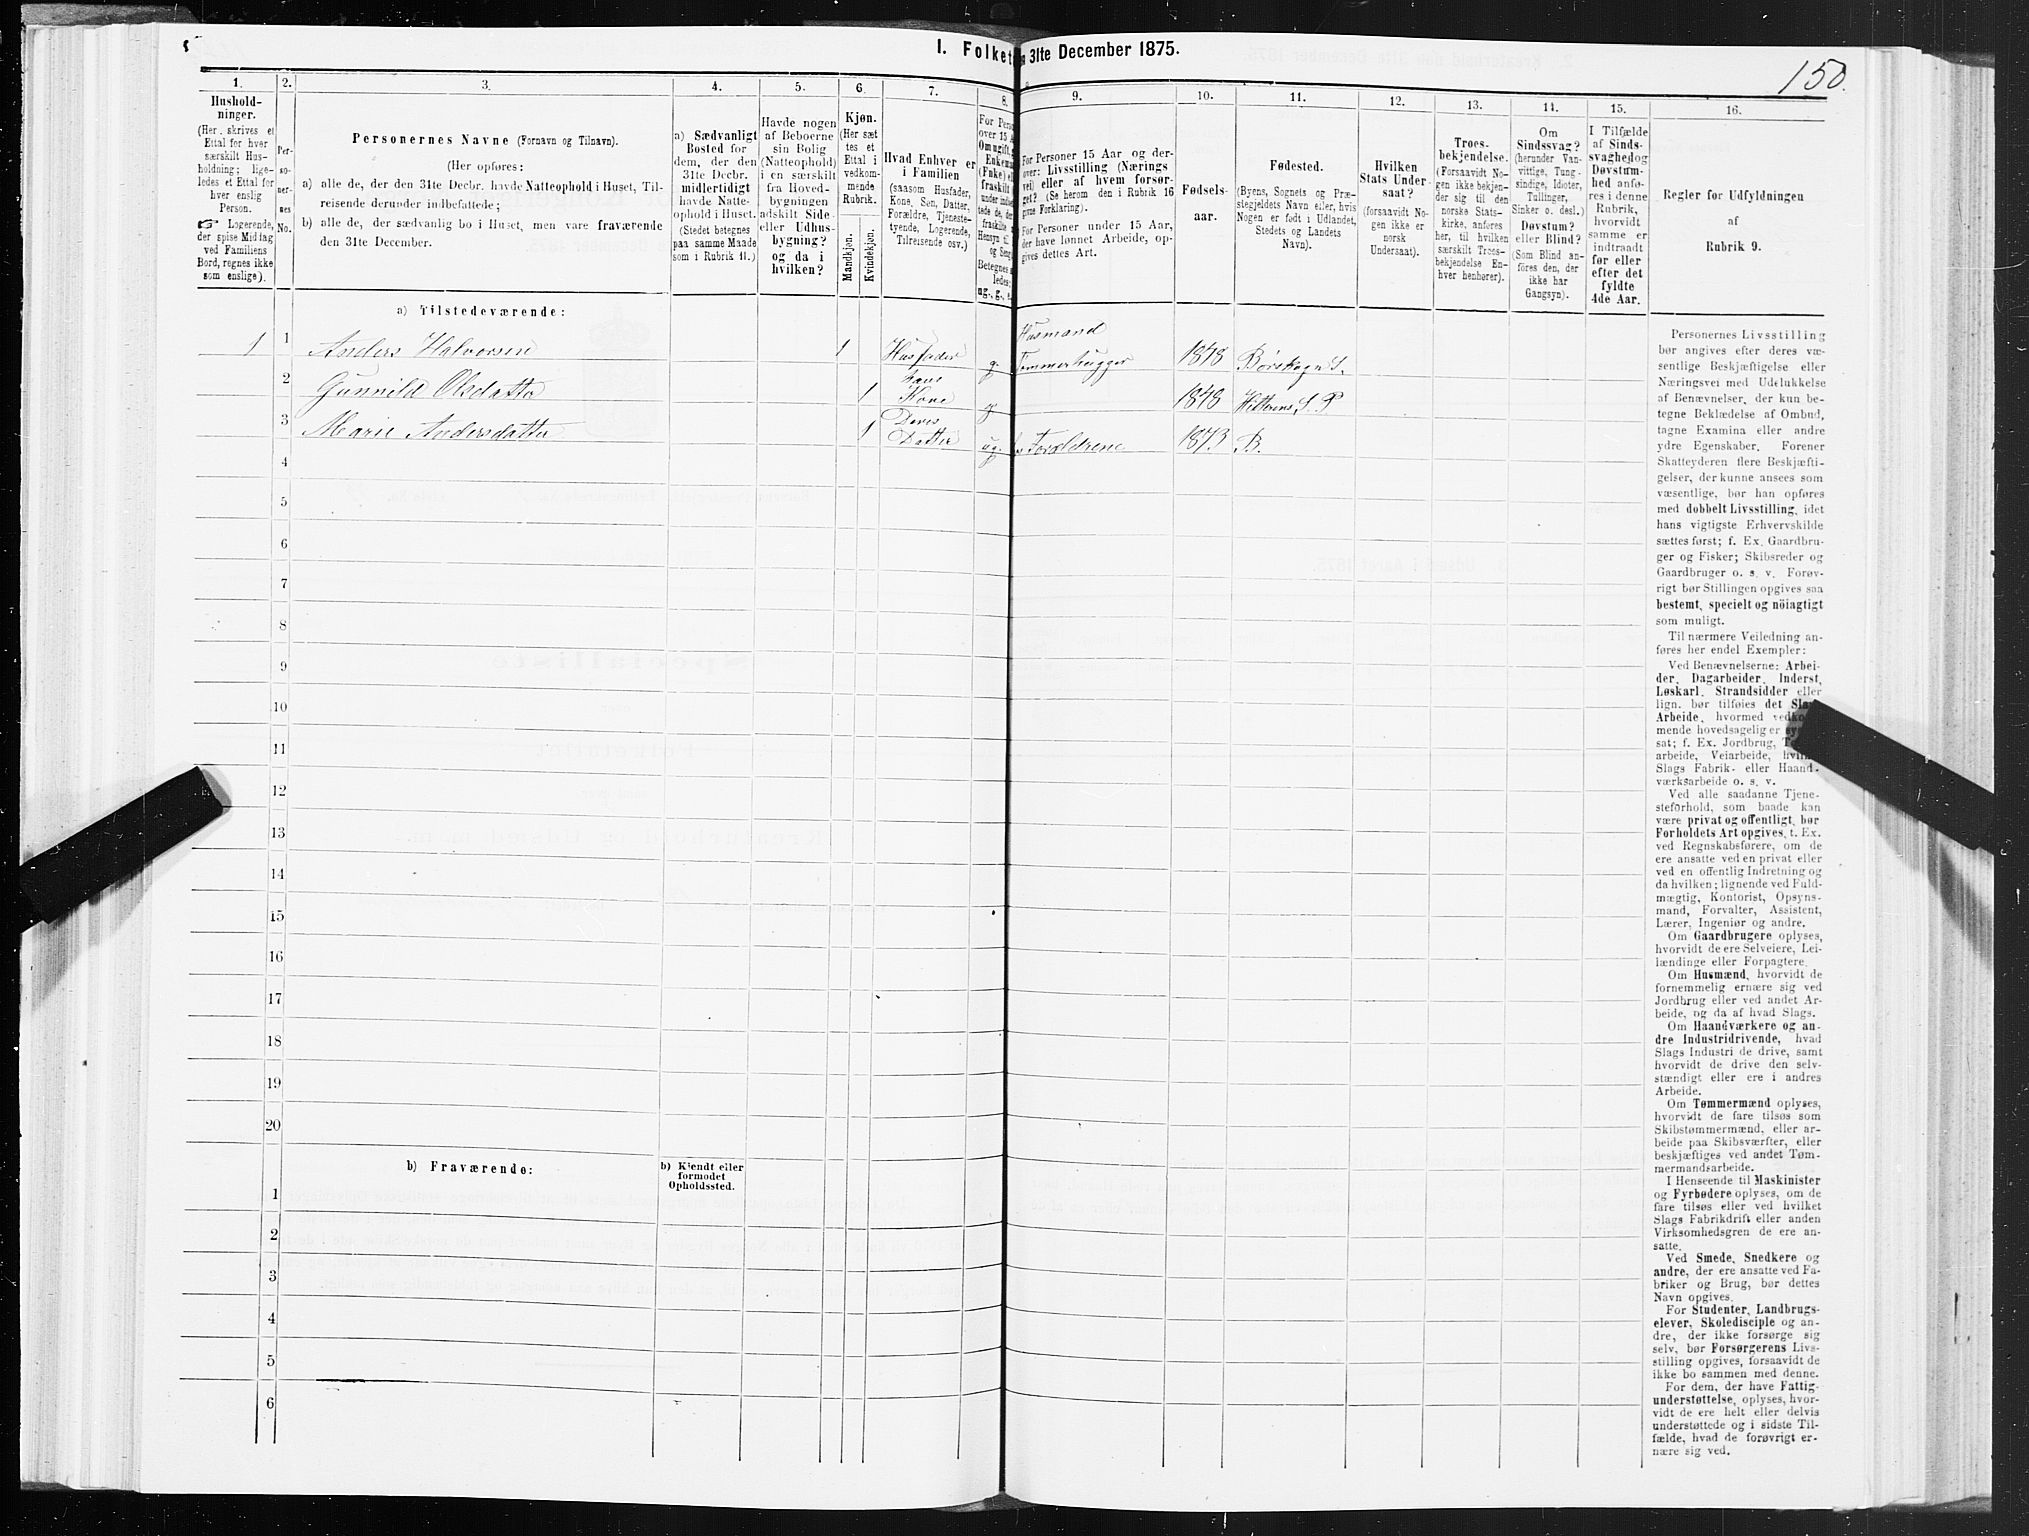 I. Folket n 31te December 1875.
150.
1.
Hushold-
ninger.
(Her skrives et
Ettal for hver
særskilt Hus-
holdning; lige-
ledes et Ettal for
hver enslig
Person.
☞ Logerende,
der spise Middag
ved Familiens
Bord, regnes ikke
som enslige).
2.
Per-
so-
ner-
nes
No.
3.
Personernes Navne (Fornavn og Tilnavn).
(Her opføres:
a) alle de, der den 31te Decbr. havde Natteophold i Huset, Til-
reisende derunder indbefattede;
b) alle de, der sædvanlig bo i Huset, men vare fraværende
den 31te December.
4.
a) Sædvanligt
Bosted for
dem, der den
31te Decbr.
midlertidigt
havde Natte-
ophold i Huset.
(Stedet betegnes
paa samme Maade
som i Rubrik 11.)
5.
Havde nogen
af Beboerne
sin Bolig
(Natteophold)
i en særskilt
fra Hoved-
bygningen
adskilt Side-
eller Udhus-
bygning?
og da i
hvilken?
6.
Kjøn.
(Her sæt
tes et
Ettal i
vedkom-
mende
Rubrik.
Mandkjøn.
Kvindekjøn.
7.
Hvad Enhver er
i Familien
(saasom Husfader,
Kone, Søn, Datter,
Forældre, Tjeneste-
tyende, Logerende,
Tilreisende osv.)
8.
For Pers
over 15 A
Om ugift, g
Enkem
(Enke) el
fraskilt
9.
For Personer 15 Aar og der-
over: Livsstilling (Nærings
vei) eller af hvem forsør-
get? (Se herom den i Rubrik 16
givne Forklaring).
For Personer under 15 Aar,
der have lønnet Arbeide, op-
gives dettes Art.
10.
Fødsels-
aar.
11.
Fødested.
(Byens, Sognets og Præ-
stegjeldets Navn eller, hvis
Nogen er født i Udlandet,
Stedets og Landets
Navn).
12.
Hvilken
Stats Under-
saat?
(forsaavidt No-
gen ikke er
norsk
Undersaat).
13.
Troes-
bekjendelse.
(Forsaavidt No-
gen ikke bekjen-
der sig til den
norske Stats-
kirke, anføres
her, til hvilken
særskilt Troes-
bekjendelse En-
hver henhører).
14.
Om
Sindssvag?
(herunder Van-
vittige, Tung-
sindige, Idioter,
Tullinger,
Sinker o. desl.)
Døvstum?
eller Blind?
(Som Blind an-
føres den, der
ikke har
Gangsyn).
15.
I Tilfælde
af Sinds-
svaghed og
Døvstum-
hed anfø-
res i denne
Rubrik,
hvorvidt
samme er
indtraadt
før eller
efter det
fyldte
4de Aar.
16.
Regler for Udfyldningen
af
Rubrik 9.
a) Tilstedeværende:
1 1 Anders Halvorsen 1 Husfader g. Husmand Tømmerhugger 1848 Børskogn S.
2 Gunnild Olsdatter 1 hans Kone g 1848 Hitterens S. P
3 Marie Andersdatter 1 Deres Datter ug. Forældrene 1873 B.
4
5
6
7
8
9
10
11
12
13
14
15
16
17
18
19
20
b) Fraværende:
b) Kjendt eller
formodet
Opholdssted.
1
2
3
4
5
6
Personernes Livsstilling
bør angives efter deres væ-
sentlige Beskjæftigelse eller
Næringsvei med Udelukkelse
af Benævnelser, der kun be-
tegne Beklædelse af Ombud,
tagne Examina eller andre
ydre Egenskaber. Forener
Skatteyderen flere Beskjæfti-
gelser, der kunne ansees som
væsentlige, bør han opføres
med dobbelt Livsstilling, idet
hans vigtigste Erhvervskilde
sættes først; f. Ex. Gaardbru-
ger og Fisker; Skibsreder og
Gaardbruger o. s. v. Forøv-
rigt bør Stillingen opgives saa
bestemt, specielt og nöiagtigt
som muligt.
Til nærmere Veiledning an-
føres her endel Exempler:
Ved Benævnelserne: Arbei-
der, Dagarbeider, Inderst,
Løskarl, Strandsidder eller
lign. bør tilføies det Slags
Arbeide, hvormed vedkom-
mende hovedsagelig er
sat; f. Ex. Jordbrug,
arbeide, Veiarbeide, hvilket
Slags Fabrik- eller Haand-
værksarbeide o. s. v.
Ved alle saadanne Tjene-
steforhold, som baade kan
være privat og offentligt, bør
Forholdets Art opgives, t. Ex.
ved Regnskabsførere, om de
ere ansatte ved en privat eller
ved en offentlig Indretning og
da hvilken; lignende ved Fuld-
mægtig, Kontorist, Opsyns-
mand, Forvalter, Assistent,
Lærer, Ingeniør og andre.
Om Gaardbrugere oplyses,
hvorvidt de ere Selveiere, Lei-
lændinge eller Forpagtere.
Om Husmænd, hvorvidt de
fornemmelig ernære sig ved
Jordbrug eller ved andet Ar-
beide, og da af hvad Slags.
Om Haandværkere og an-
dre Industridrivende, hvad
Slags Industri de drive, samt
hvorvidt de drive den selv-
stændigt eller ere i andres
Arbeide.
Om Tømmermænd oplyses,
hvorvidt de fare tilsøs som
Skibstømmermænd, eller ar-
beide paa Skibsværfter, eller
beskjæftiges ved andet Tøm-
mermandsarbeide.
I Henseende til Maskinister
og Fyrbødere oplyses, om de
fare tilsøs eller ved hvilket
Slags Fabrikdrift eller anden
Virksomhedsgren de ere an-
satte.
Ved Smede, Snedkere og
andre, der ere ansatte ved Fa-
briker og Brug, bør dettes
Navn opgives.
For Studenter, Landbrugs-
elever, Skoledisciple og an-
dre, der ikke forsørge sig
selv, bør Forsørgerens Livs-
stilling opgives, forsaavidt de
ikke bo sammen med denne.
For dem, der have Fattig-
understøttelse, oplyses, hvor-
vidt de ere helt eller delvis
understøttede og i sidste Til-
fælde, hvad de forøvrigt er-
nære sig ved.